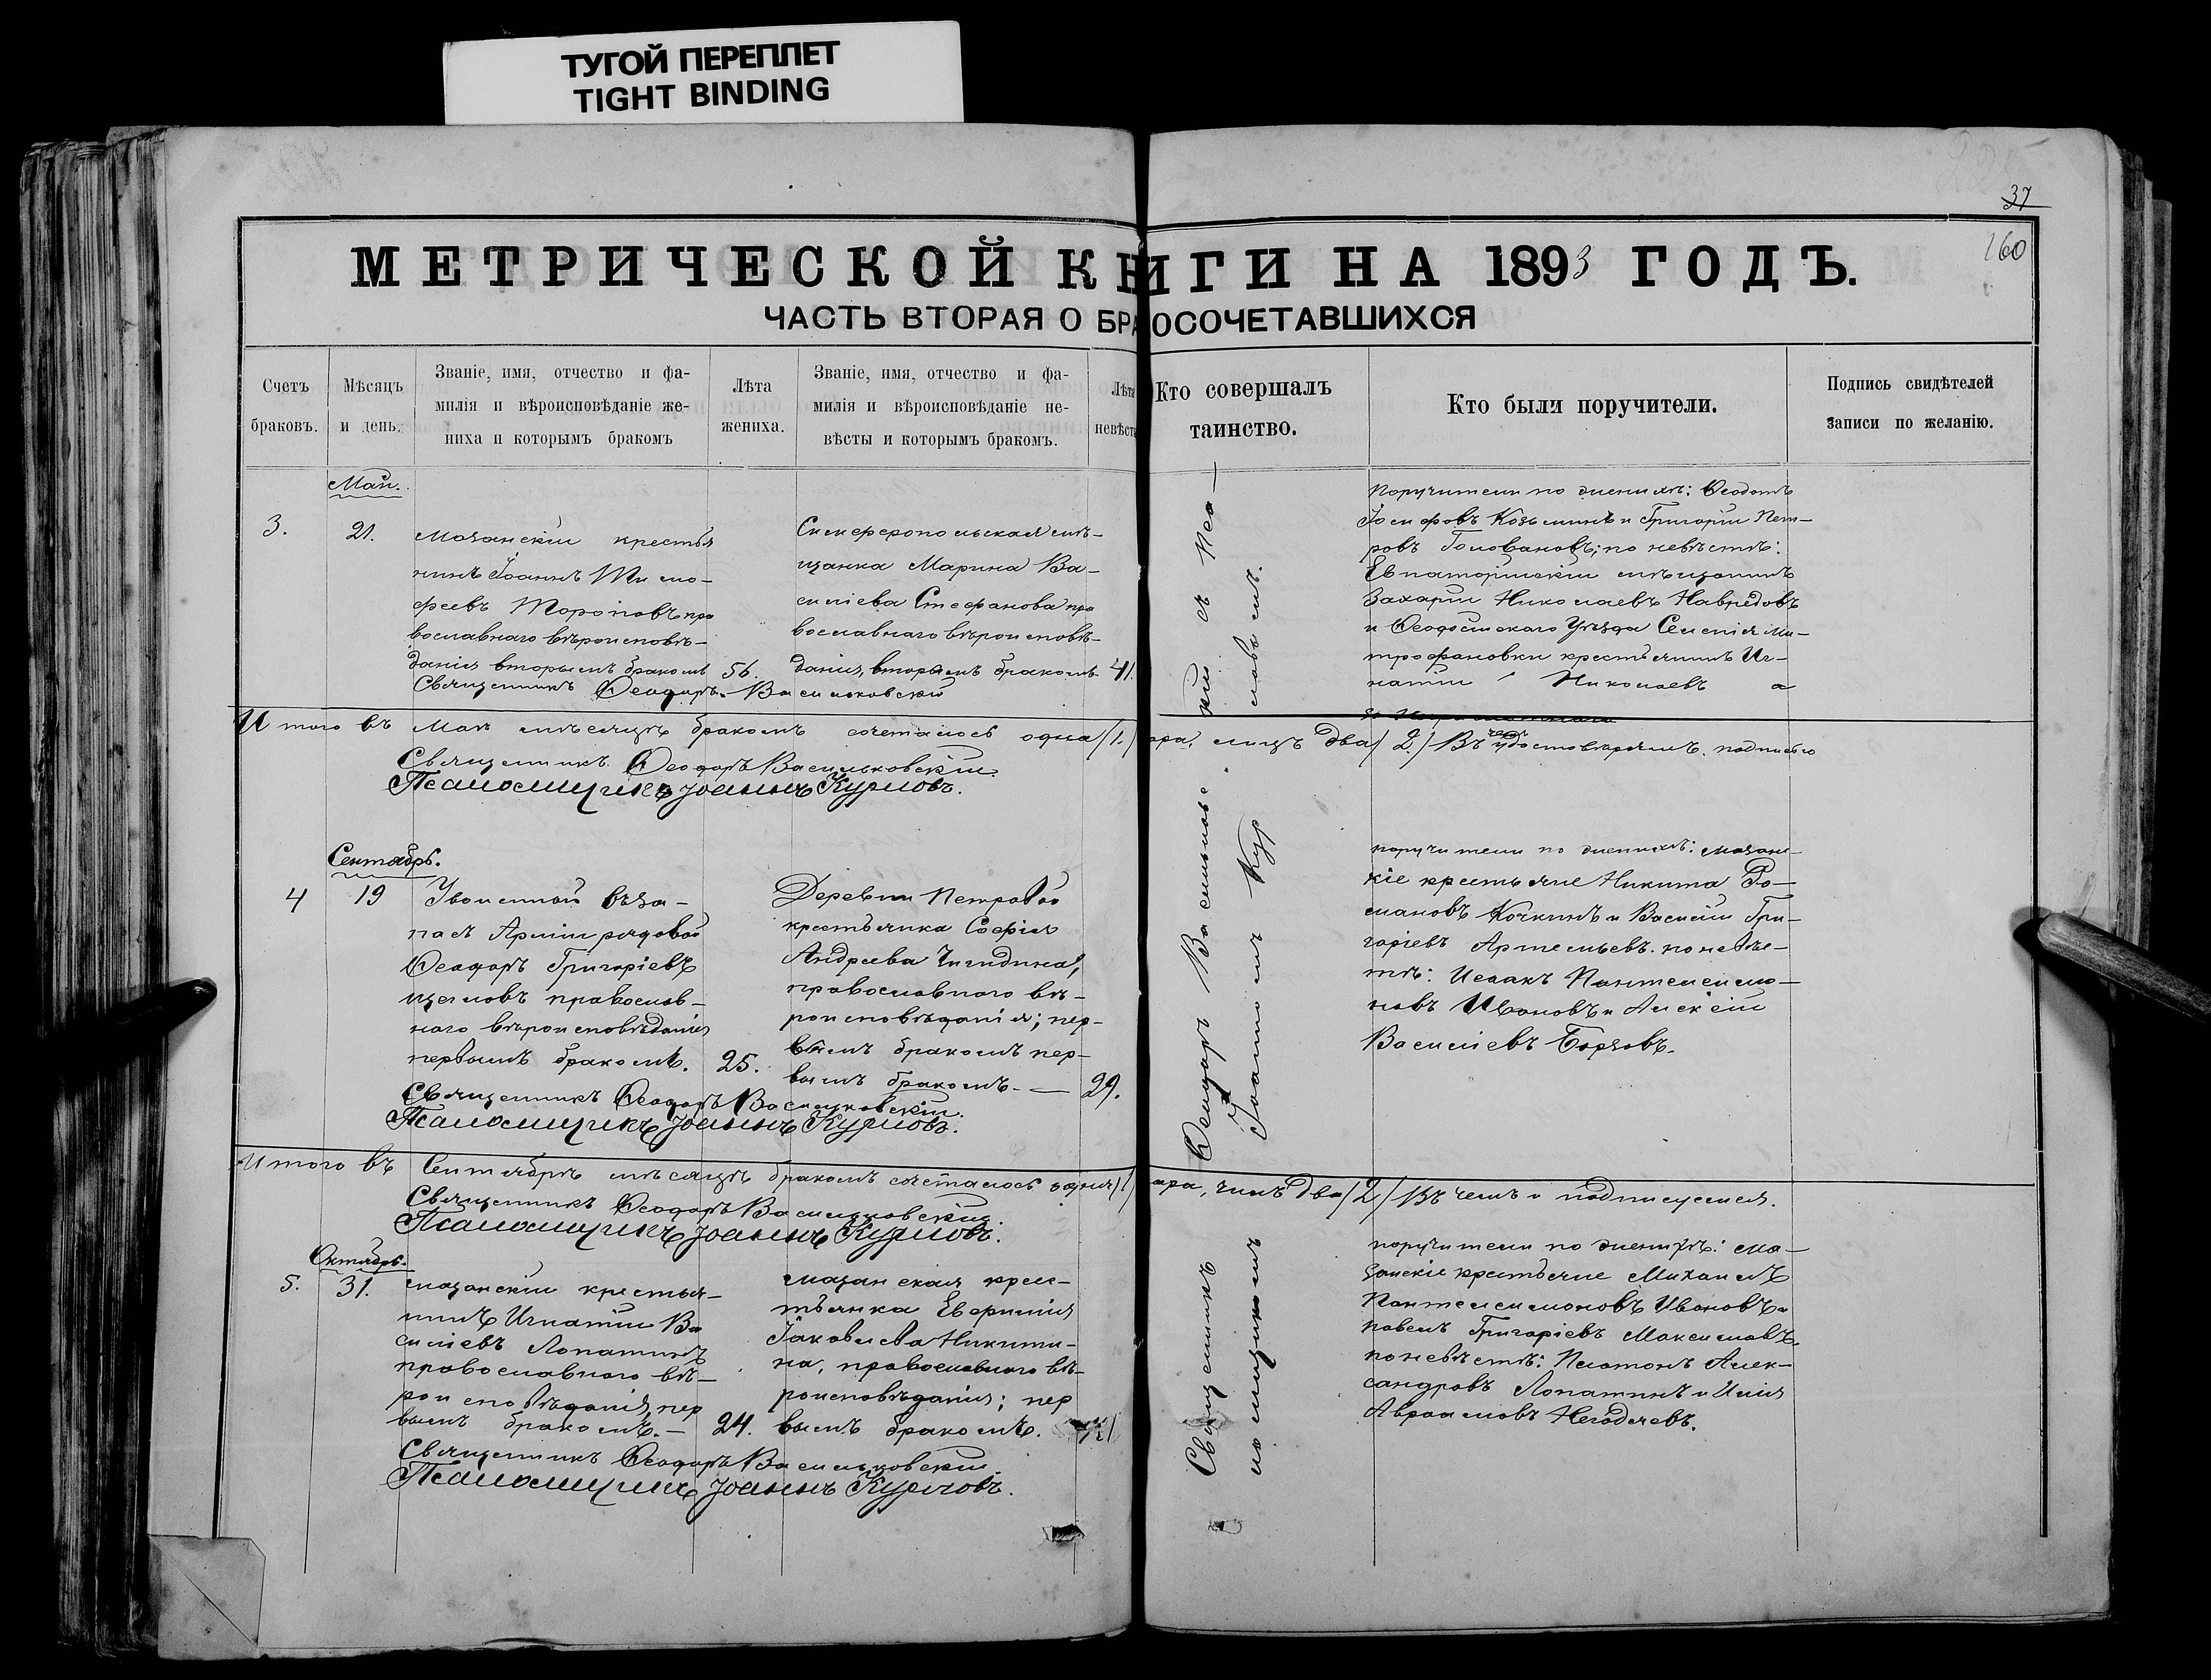 ТУГОЙ ПЕРЕПЛЕТ
TIGHT BINDING
37
160
МЕТРИЧЕСКОЙ КНИГИ НА 1893 ГОДЪ.
ЧАСТЬ ВТОРАЯ О БРАКОСОЧЕТАВШИХСЯ
Счетъ
браковъ.
Мѣсяцъ
и день.
Званіе, имя, отчество и фа-
милія и вѣроисповѣданіе же-
ниха и которымъ бракомъ
Лѣта
жениха.
Званіе, имя, отчество и фа-
милія и вѣроисповѣданіе не-
вѣсты и которымъ бракомъ.
Лѣта
невѣсты
Кто совершалъ
таинство.
Кто были поручители.
Подпись свидѣтелей
записи по желанію.
Май.
3.
21.
Мазанскій крестья
нинъ Іоаннъ Тимо-
феевъ Тороповъ пра
вославнаго вѣроисповѣ-
данія вторымъ бракомъ
56.
Симферопольская мѣ-
щанка Марина Ва-
силіева Стефанова пра
вославнаго вѣроисповѣ-
данія, вторымъ бракомъ
41.
Священникъ Ѳеодоръ Васильковскій
Поручители по женихѣ: Ѳеодотъ
Іосифовъ Козьминъ и Григорій Пет-
ровъ Головановъ; по невѣстѣ:
Евпаторійскій мѣщанинъ
Захарій Николаевъ Навредовъ
и Ѳеодосійскаго Уѣзда Селенія Ми-
трофановки крестьянинъ Иг-
натій Николаевъ
Итого въ Маѣ мѣсяцѣ бракомъ сочеталось одна /1./ пара, лицъ два /2./ Въ чемъ удостовѣряемъ подписью
Священникъ Ѳеодоръ Васильковскій
Псаломщикъ Іоаннъ Курловъ.
Сентябрь.
4
19
Уволенный въ за-
пасъ Арміи рядовой
Ѳеодоръ Григоріевъ
Щегловъ православ-
наго вѣроисповѣданія
первымъ бракомъ.
25.
Деревни Петровой
крестьянка Софія
Андреева Чигидина,
православнаго вѣ-
роисповѣданія; пер-
вымъ бракомъ пер-
вымъ бракомъ. —
29.
Священникъ Ѳеодоръ Васильковскій.
Псаломщикъ Іоаннъ Курловъ.
поручители по женихѣ: мазан-
скіе крестьяне Никита Ро-
мановъ Кочкинъ и Василій Гри-
горіевъ Артемьевъ. по невѣс-
тѣ: Исаакъ Пантелеимо-
новъ Ивановъ и Алексій
Василіевъ Борзовъ.
Итого въ Сентябрѣ мѣсяцѣ бракомъ сочеталось одна /1/ пара, лицъ два /2/ Въ чемъ и подписуемся.
Священникъ Ѳеодоръ Васильковскій
Псаломщикъ Іоаннъ Курловъ.
Октябрь.
5.
31.
мазанскій крестья-
нинъ Игнатій Ва
силіевъ Лопатинъ
православнаго вѣ-
роисповѣданія, пер
вымъ бракомъ. —
24.
мазанская крес-
тьянка Евфимія
Іаковлева Никити-
на, православнаго вѣ-
роисповѣданія; пер
вымъ бракомъ.
Священникъ Ѳеодоръ Васильковскій
Псаломщикъ Іоаннъ Курловъ.
Священникъ Ѳеодоръ Васильковскій съ Пса-
ломщикомъ Іоанномъ Курловымъ.
поручители по женихѣ: ма-
занскіе крестьяне Михаилъ
Пантелеимоновъ Ивановъ и
Павелъ Григоріевъ Максимовъ,
по невѣстѣ: Платонъ Алек-
сандровъ Лопатинъ и Илія
Авраамовъ Негодяевъ.